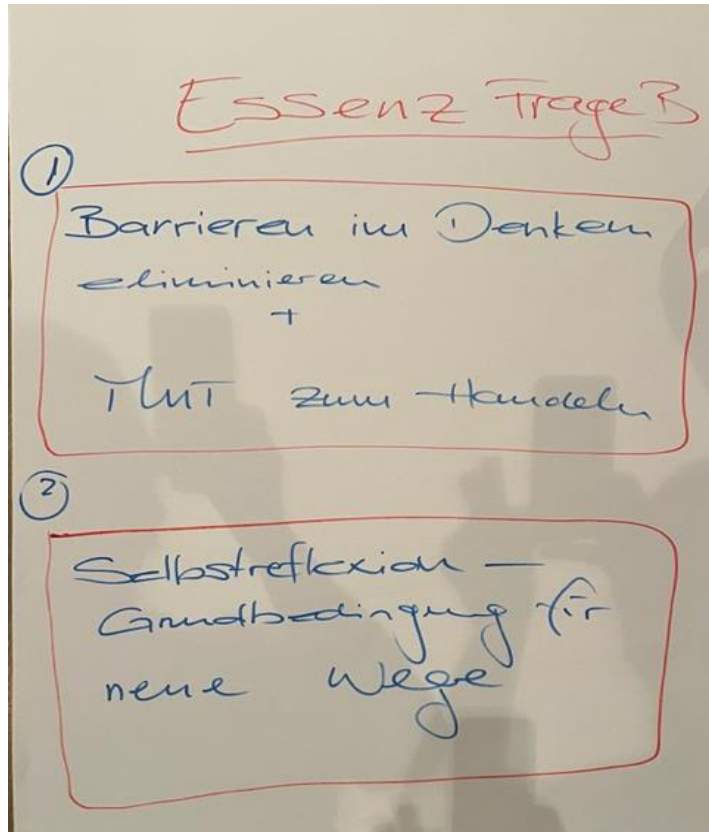 Essenz Frage B
①
Barrieren im Denken
eliminieren
+
Mut zum Handeln
②
Selbstreflexion –
Grundbedingung für
neue Wege